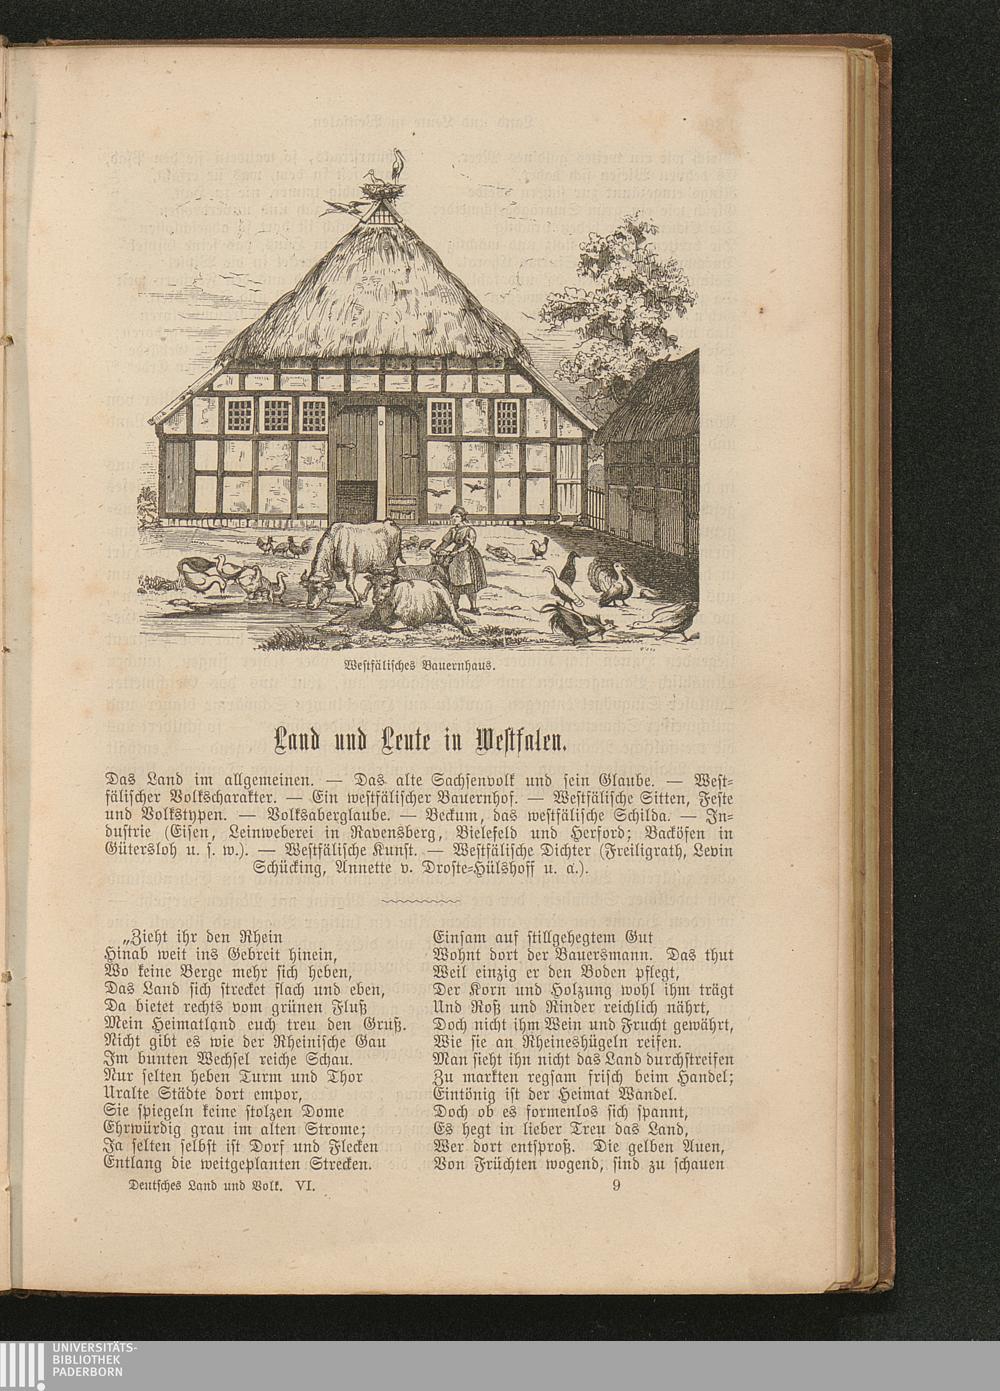 Westfälisches Bauernhaus.
Land und Leute in Westfalen.
Das Land im allgemeinen. — Das alte Sachsenvolk und sein Glaube. — West-
fälischer Volkscharakter. — Ein westfälischer Bauernhof. — Westfälische Sitten, Feste
und Volkstypen. — Volksaberglaube. — Beckum, das westfälische Schilda. — In-
dustrie (Eisen, Leinweberei in Ravensberg, Bielefeld und Herford; Backöfen in
Gütersloh u. s. w.). — Westfälische Kunst. — Westfälische Dichter (Freiligrath, Levin
Schücking, Annette v. Droste-Hülshoff u. a.).
„Zieht ihr den Rhein
Hinab weit ins Gebreit hinein,
Wo keine Berge mehr sich heben,
Das Land sich strecket flach und eben,
Da bietet rechts vom grünen Fluß
Mein Heimatland euch treu den Gruß.
Nicht gibt es wie der Rheinische Gau
Im bunten Wechsel reiche Schau.
Nur selten heben Turm und Thor
Uralte Städte dort empor,
Sie spiegeln keine stolzen Dome
Ehrwürdig grau im alten Strome;
Ja selten selbst ist Dorf und Flecken
Entlang die weitgeplanten Strecken.
Einsam auf stillgehegtem Gut
Wohnt dort der Bauersmann. Das thut
Weil einzig er den Boden pflegt,
Der Korn und Holzung wohl ihm trägt
Und Roß und Rinder reichlich nährt,
Doch nicht ihm Wein und Frucht gewährt,
Wie sie an Rheineshügeln reifen.
Man sieht ihn nicht das Land durchstreifen
Zu markten regsam frisch beim Handel;
Eintönig ist der Heimat Wandel.
Doch ob es formenlos sich spannt,
Es hegt in lieber Treu das Land,
Wer dort entsproß. Die gelben Auen,
Von Früchten wogend, sind zu schauen
Deutsches Land und Volk. VI.
9
UNIVERSITÄTS-
BIBLIOTHEK
PADERBORN